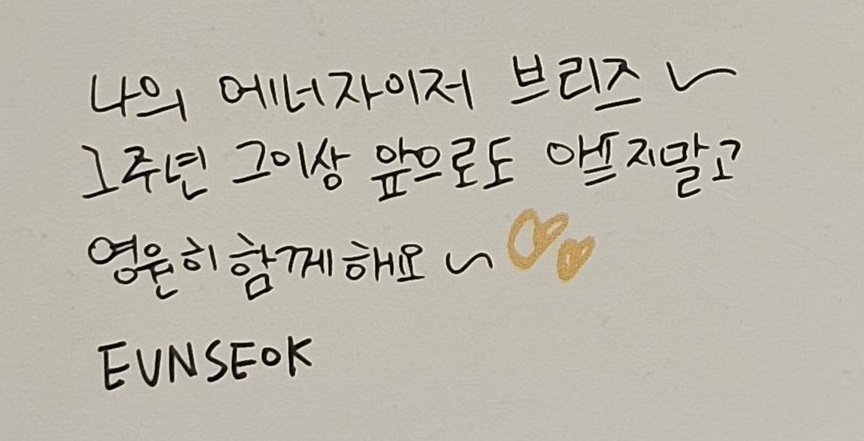 나의 에너자이저 브리즈~
1주년 그이상 앞으로도 아프지말고
영원히 함께해요~ ♡♡
EUNSEOK